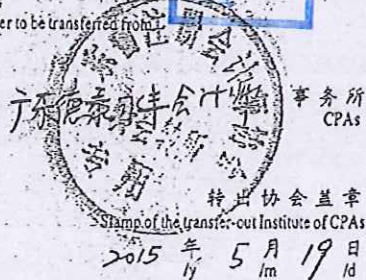 er to be transferred from
广东德 会计师 事务所
CPAs
注册会计师协会
转出协会盖章
Stamp of the transfer-out Institute of CPAs
2015 年 5 月 19 日
/y /m /d